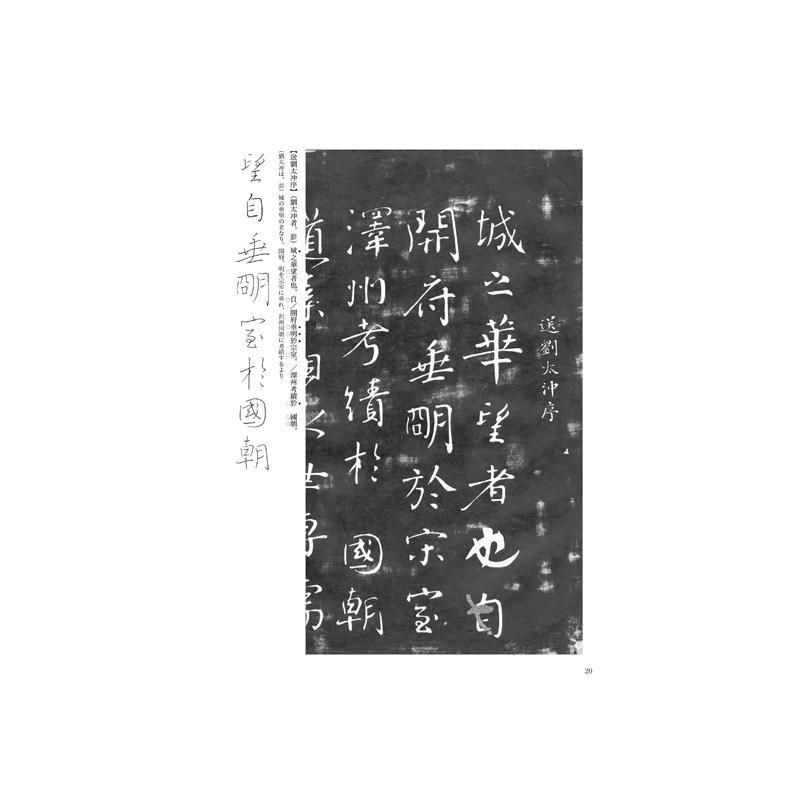 送劉太沖序
城之華望者也自
開府垂明於宗室
澤州考績於　國朝
道素相
【送劉太沖序】（劉太沖者、彭）城之華望者也。自／開府垂明於宗室、／澤州考績於　國朝。
（劉太沖は、彭）城の華望の者なり。開府、明を宗室に垂れ、沢州国朝に考績するより
望自垂明室於國朝
20